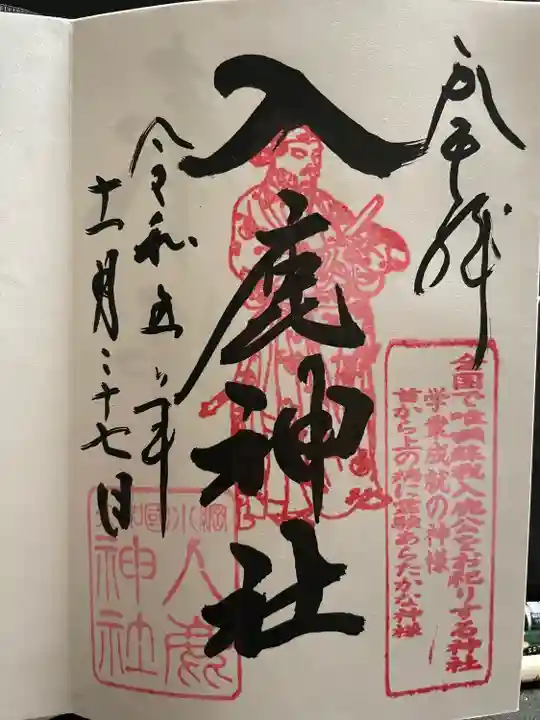 奉拝
入鹿神社
全国で唯一蘇我入鹿公をお祀りする神社
学業成就の神様
首から上の病に霊験あらたかな神様
令和五年
十一月二十七日
入鹿
神社